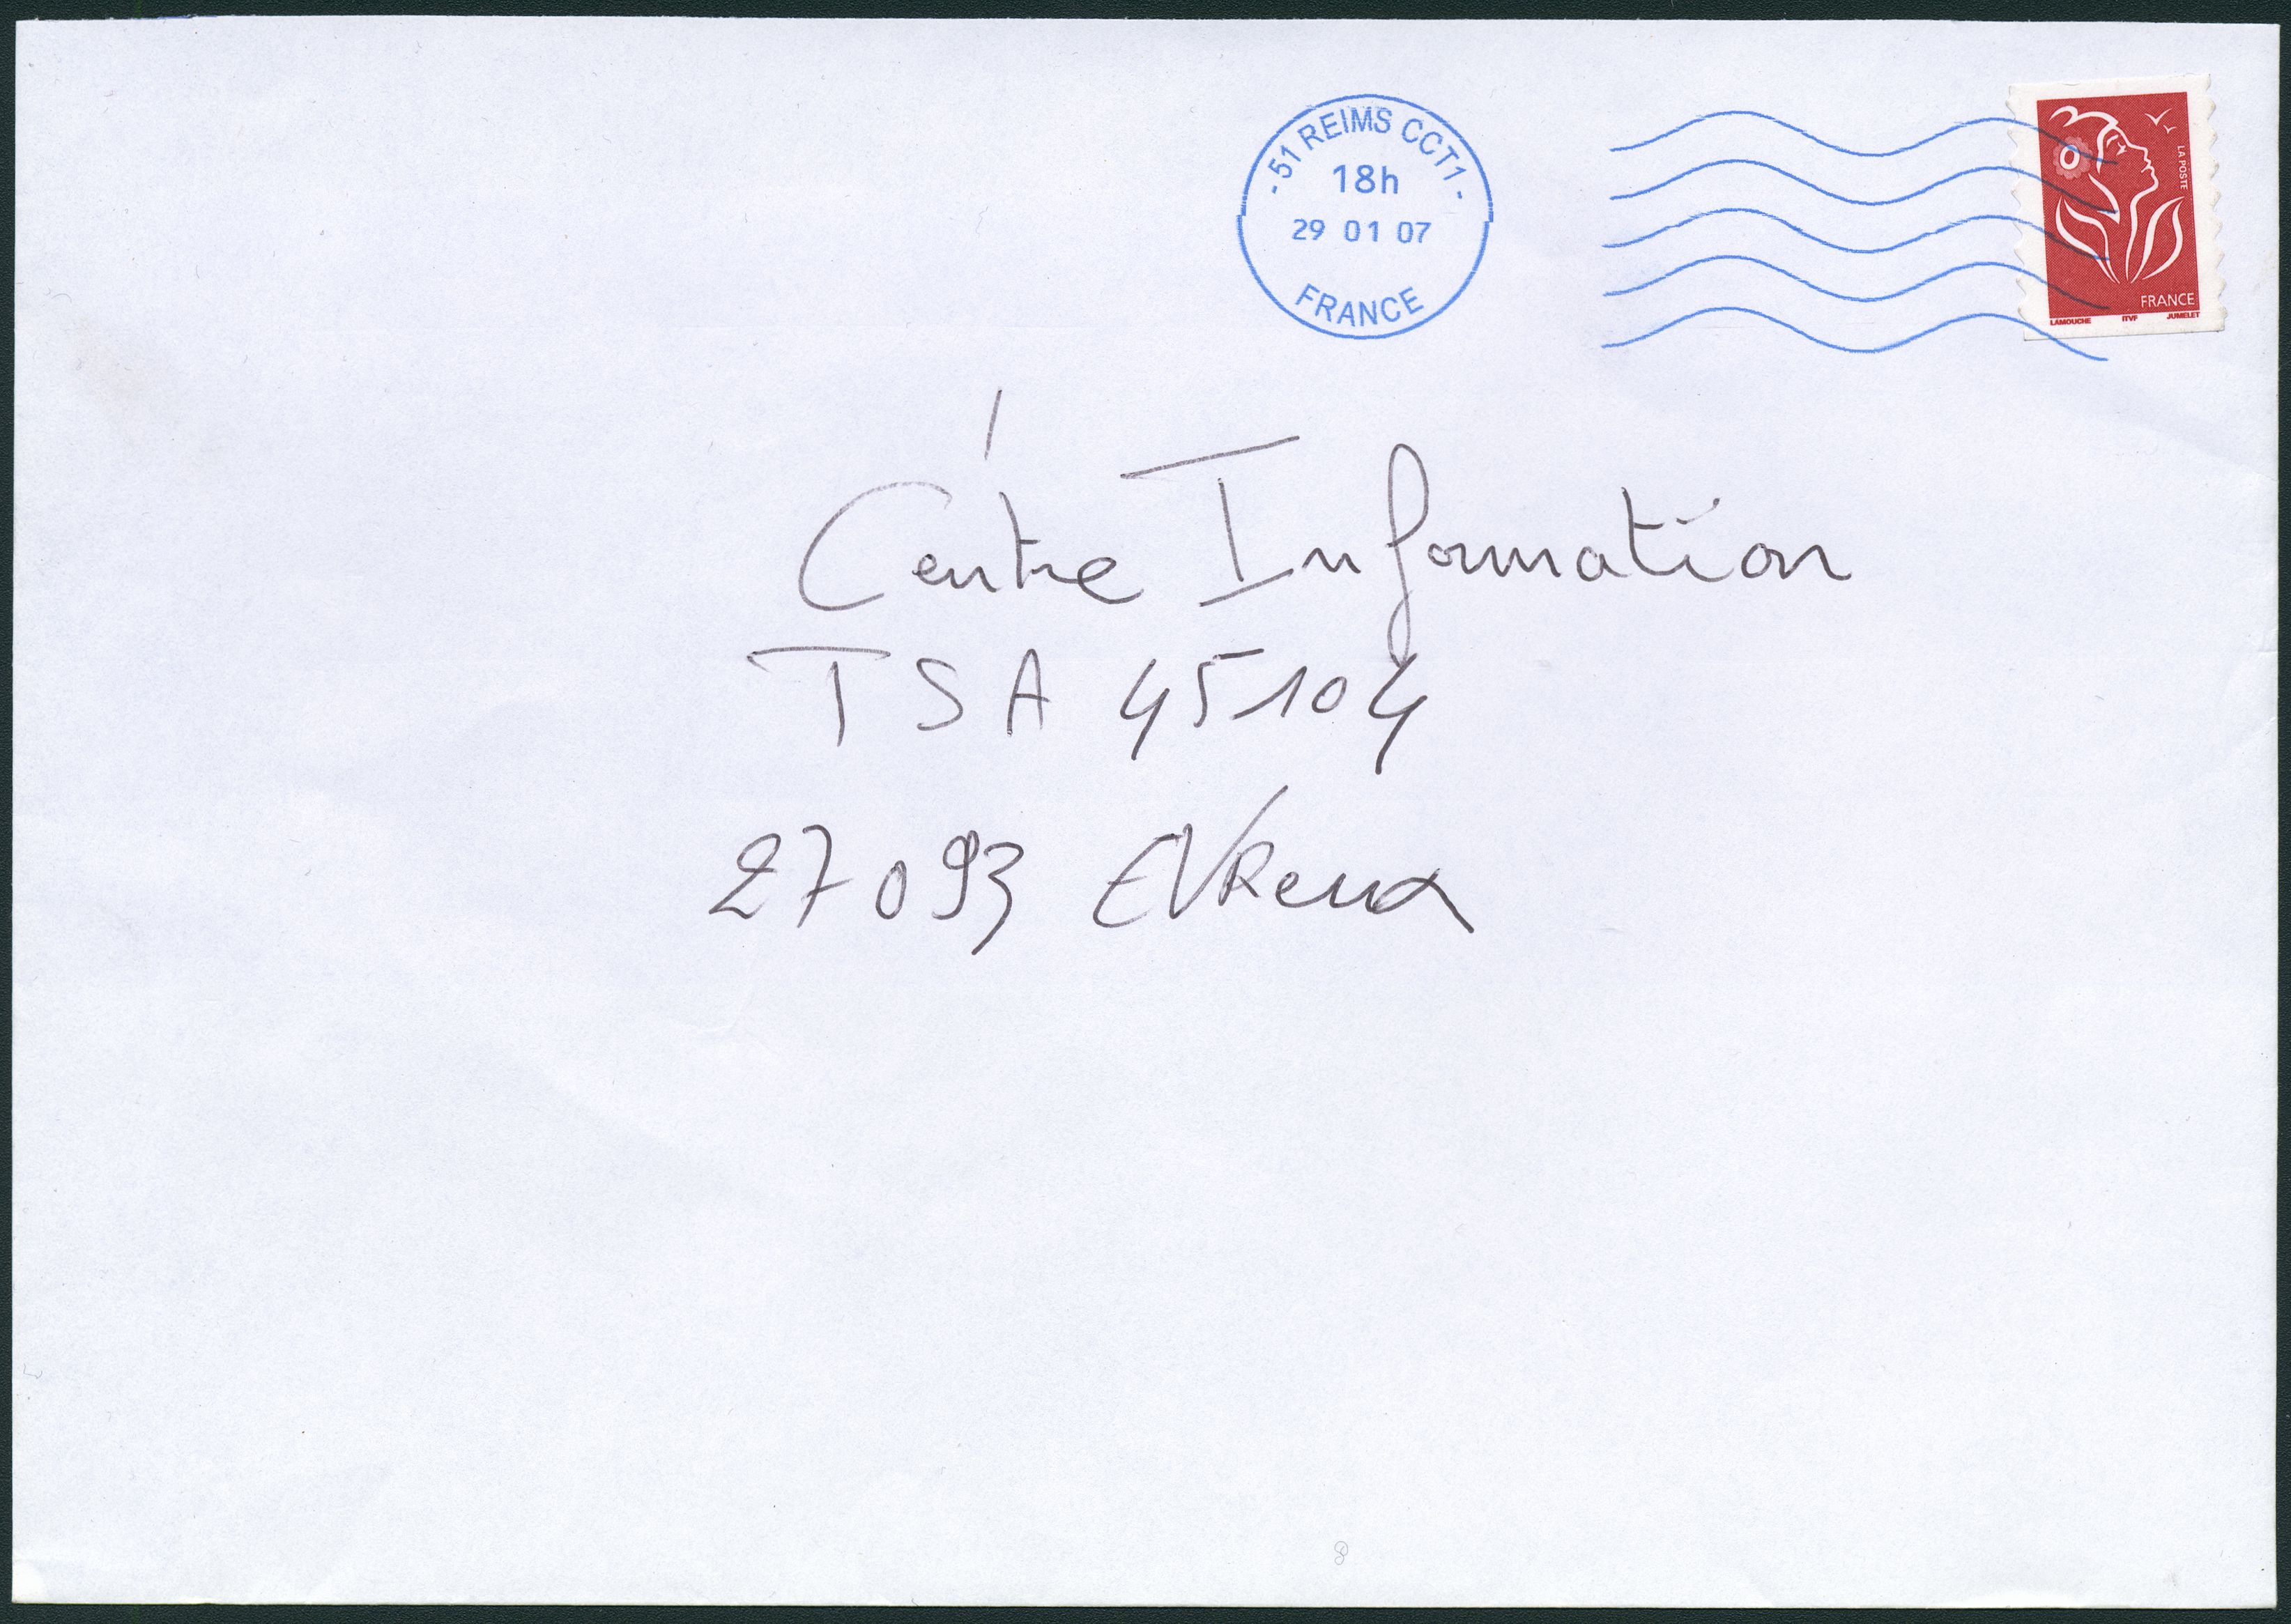 - 51 REIMS CCT1 -
18h
29 01 07
FRANCE
LA POSTE
FRANCE
LAMOUCHE ITVF JUMELET
Centre Information
TSA 45104
27093 EVReux
8